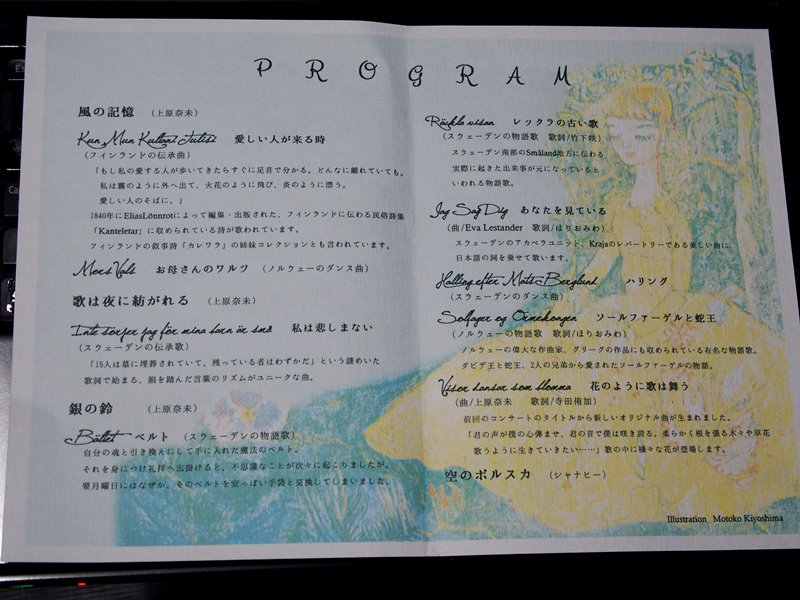 PROGRAM
風の記憶 （上原奈未）
Kun Mun Kultani Tulisi 愛しい人が来る時
（フィンランドの伝承曲）
「もし私の愛する人が歩いてきたらすぐに足音で分かる。どんなに離れていても。
私は霧のように外へ出て、火花のように飛び、炎のように漂う。
愛しい人のそばに。」
1840年にEliasLönnrotによって編集・出版された、フィンランドに伝わる民俗詩集
「Kanteletar」に収められている詩が歌われています。
フィンランドの叙事詩「カレワラ」の姉妹コレクションとも言われています。
Mors Vals お母さんのワルツ （ノルウェーのダンス曲）
歌は夜に紡がれる （上原奈未）
Inte sörjer jag för mina barn är små 私は悲しまない
（スウェーデンの伝承歌）
「15人は墓に埋葬されていて、残っている者はわずかだ」という謎めいた
歌詞で始まる、韻を踏んだ言葉のリズムがユニークな曲。
銀の鈴 （上原奈未）
Bältet ベルト （スウェーデンの物語歌）
自分の魂と引き換えにして手に入れた魔法のベルト。
それを身につけ礼拝へ出掛けると、不思議なことが次々に起こりましたが、
翌月曜日にはなぜか、そのベルトを安っぽい手袋と交換してしまいました。
Räckla visan レックラの古い歌
（スウェーデンの物語歌 歌詞/竹下咲）
スウェーデン南部のSmåland地方に伝わる
実際に起きた出来事が元になっていると
いわれる物語歌。
Jag Såg Dig あなたを見ている
（曲/Eva Lestander 歌詞/ほりおみわ）
スウェーデンのアカペラユニット、Krajaのレパートリーである美しい曲に、
日本語の詞を乗せて歌います。
Halling efter Mats Berglund ハリング
（スウェーデンのダンス曲）
Solfager og Ormekongen ソールファーゲルと蛇王
（ノルウェーの物語歌 歌詞/ほりおみわ）
ノルウェーの偉大な作曲家、グリーグの作品にも収められている有名な物語歌。
ダビデ王と蛇王、2人の兄弟から愛されたソールファーゲルの物語。
Visor dansar som blomma 花のように歌は舞う
（曲/上原奈未 歌詞/寺田侑加）
前回のコンサートのタイトルから新しいオリジナル曲が生まれました。
「君の声が僕の心弾ませ、君の音で僕は咲き誇る。柔らかく根を張る木々や草花
歌うように生きていきたい……」歌の中に様々な花が登場します。
空のポルスカ （シャナヒー）
Illustration Motoko Kiyoshima